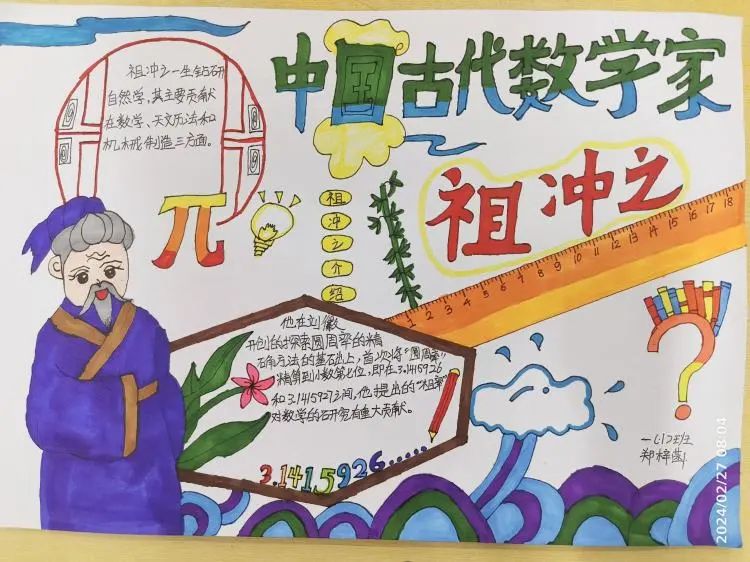 中国古代数学家
祖冲之
祖冲之一生钻研
自然学,其主要贡献
在数学、天文历法和
机械制造三方面。
π
祖
冲
之
介
绍
1 2 3 4 5 6 7 8 9 10 11 12 13 14 15 16 17 18
他在刘徽
开创的探索圆周率的精
确方法的基础上,首次将“圆周率”
精算到小数第七位,即在3.1415926
和3.1415927之间,他提出的“祖率”
对数学的研究有重大贡献。
3.1415926......
?
一(1)班
郑梓
2024/02/27 08:04